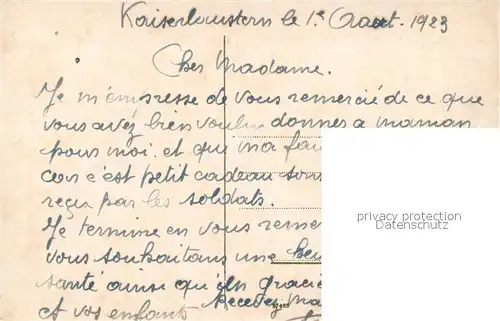 Kaiserloustern le 1e Aout. 1923
Cher Madame.
Je m'empresse de vous remercié de ce que
vous avéz bien voulu donnes a maman
pour moi. et qui ma
car c'est petit cadeau
reçu par les soldats.
Je termine en vous
vous souhaitans une
santé ainsi
et vos enfants Recevez Ma
privacy protection
Datenschutz